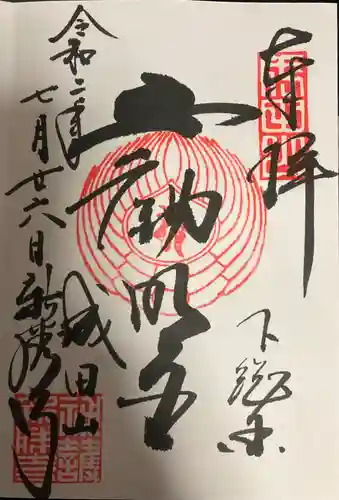 奉拝
下総
不動明王
令和二年
七月廿六日
成田山
新勝寺